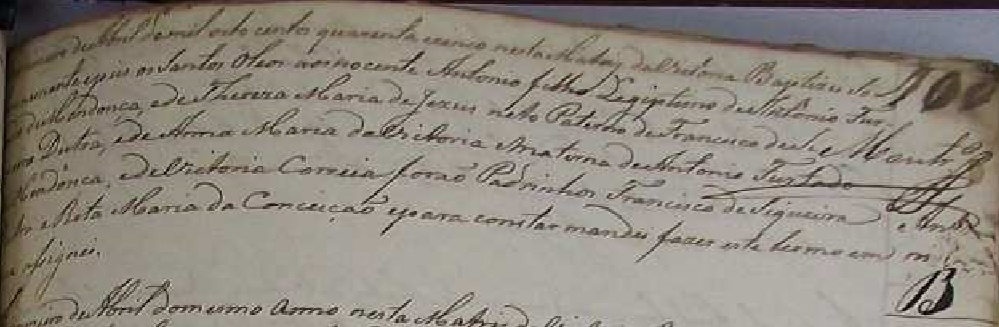 de Abril de mil oito centos quarenta e sinco nesta Matriz da Victoria Baptizei So
lenemente e pus os Santos Oleos ao inocente Antonio filho Legiptimo de Antonio Fur
de Mendonça, e de Thereza Maria de Jezus neto Paterno de Francisco de
Dutra, e de Anna Maria da Victoria e Materna de Antonio Furtado
Mendonça, e de Victoria Correia forão Padrinhos Francisco de Siqueira e
Maria da Conceição e para constar mandei fazer este termo em
asignei.
100
B
de Abril do mesmo anno nesta Matriz